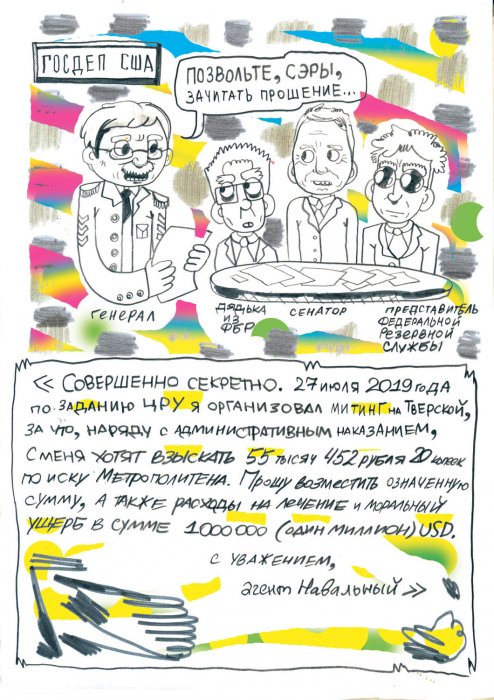 ГОСДЕП США
ПОЗВОЛЬТЕ, СЭРЫ,
ЗАЧИТАТЬ ПРОШЕНИЕ...
ГЕНЕРАЛ
ДЯДЬКА
ИЗ
ФБР
СЕНАТОР
ПРЕДСТАВИТЕЛЬ
ФЕДЕРАЛЬНОЙ
РЕЗЕРВНОЙ
СЛУЖБЫ
« СОВЕРШЕННО СЕКРЕТНО. 27 ИЮЛЯ 2019 ГОДА
ПО ЗАДАНИЮ ЦРУ Я ОРГАНИЗОВАЛ МИТИНГ НА ТВЕРСКОЙ,
ЗА ЧТО, НАРЯДУ С АДМИНИСТРАТИВНЫМ НАКАЗАНИЕМ,
С МЕНЯ ХОТЯТ ВЗЫСКАТЬ 55 ТЫСЯЧ 452 РУБЛЯ 20 КОПЕЕК
ПО ИСКУ МЕТРОПОЛИТЕНА. ПРОШУ ВОЗМЕСТИТЬ ОЗНАЧЕННУЮ
СУММУ, А ТАКЖЕ РАСХОДЫ НА ЛЕЧЕНИЕ И МОРАЛЬНЫЙ
УЩЕРБ В СУММЕ 1000000 (ОДИН МИЛЛИОН) USD.
С УВАЖЕНИЕМ,
агент Навальный »